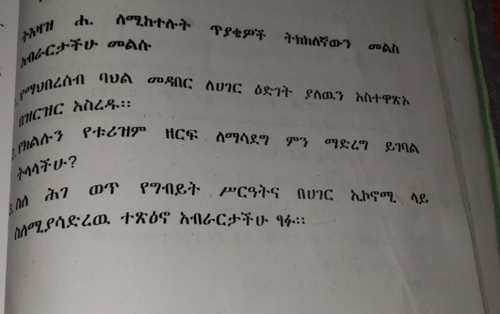 ትእዛዝ ሐ. ለሚከተሉት ጥያቄዎች ትክክለኛውን መልስ
አብራርታችሁ መልሱ
1. የማህበረሰብ ባህል መዳበር ለሀገር ዕድገት ያለዉን አስተዋጽኦ
በዝርዝር አስረዱ፡፡
2. የክልሉን የቱሪዝም ዘርፍ ለማሳደግ ምን ማድረግ ይገባል
ትላላችሁ?
3. ስለ ሕገ ወጥ የግብይት ሥርዓትና በሀገር ኢኮኖሚ ላይ
ስለሚያሳድረዉ ተጽዕኖ አብራርታችሁ ፃፉ፡፡